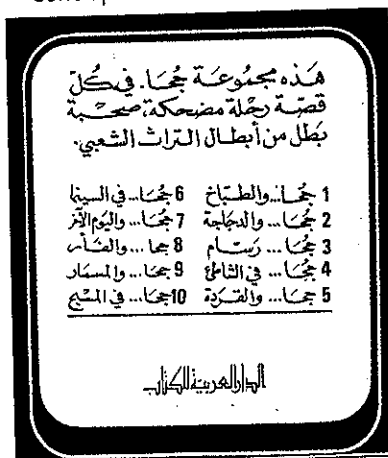 هذه مجموعة جحا. في كل
قصة رحلة مضحكة، صحبة
بطل من أبطال التراث الشعبي.
1 جحا... والطباخ
2 جحا... والدجاجة
3 جحا... رسام
4 جحا... في الشاطئ
5 جحا... والقردة
6 جحا... في السينما
7 جحا... واليوم الآخر
8 جحا... والفأر
9 جحا... والمسمار
10 جحا... في المسبح
الدار العربية للكتاب